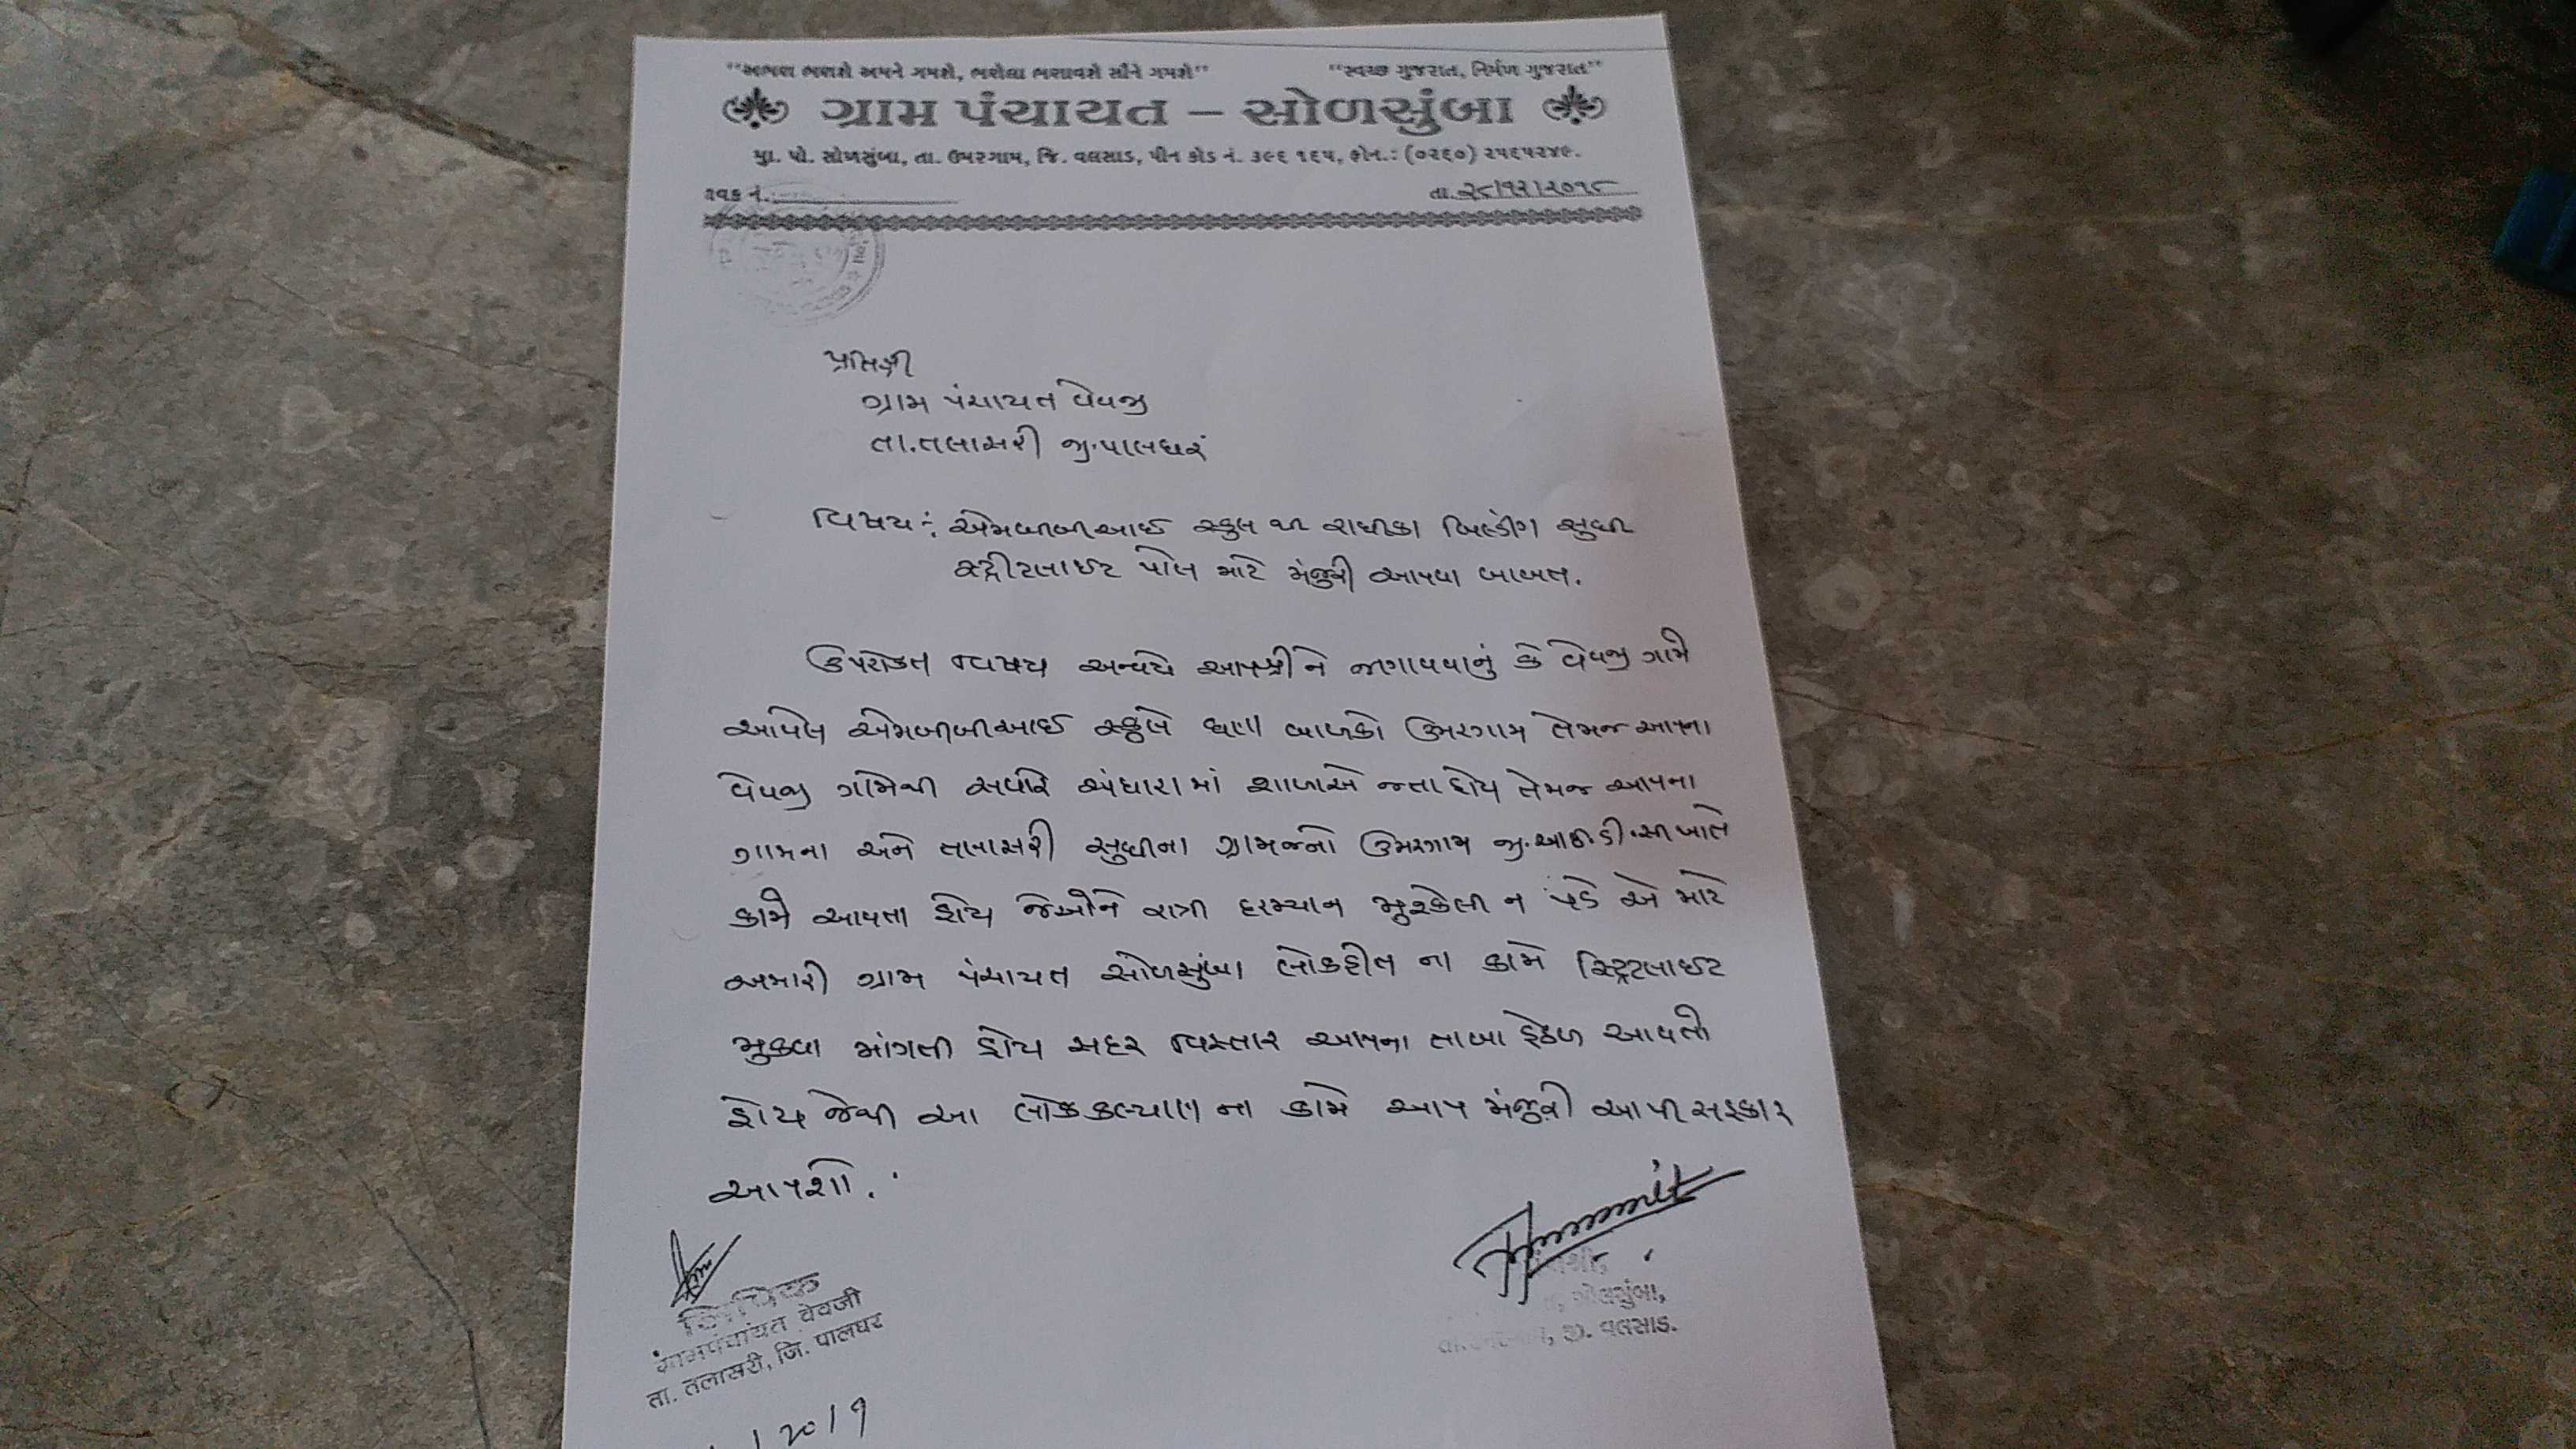 "અભણ ભણશે અમને ગમશે, ભણેલા ભણાવશે સૌને ગમશે" "સ્વચ્છ ગુજરાત, નિર્મળ ગુજરાત"
ગ્રામ પંચાયત – સોળસુંબા
મુ. પો. સોળસુંબા, તા. ઉમરગામ, જિ. વલસાડ, પીન કોડ નં. ૩૯૬ ૧૬૫, ફોન.: (૦૨૬૦) ૨૫૬૫૨૪૯.
જાવક નં. તા. ૨૮/૧૨/૨૦૧૮
પ્રતિશ્રી
ગ્રામ પંચાયત વેવજી
તા.તલાસરી જી.પાલઘર
વિષય : એમબીબીઆઈ સ્કુલ થી રાધીકા બિલ્ડીંગ સુધી
સ્ટ્રીટલાઈટ પોલ માટે મંજુરી આપવા બાબત.
ઉપરોક્ત વિષય અન્વયે આપશ્રીને જણાવવાનું કે વેવજી ગામે
આવેલ એમબીબીઆઈ સ્કુલે ઘણા બાળકો ઉમરગામ તેમજ આપના
વેવજી ગામેથી સવારે અંધારામાં શાળાએ જતા હોય તેમજ આપના
ગામના અને તલાસરી સુધીના ગ્રામજનો ઉમરગામ જી.આઈ.ડી.સી ખાતે
કામે આવતા હોય જેઓને રાત્રી દરમ્યાન મુશ્કેલી ન પડે એ માટે
અમારી ગ્રામ પંચાયત સોળસુંબા લોકહીત ના કામે સ્ટ્રિટલાઈટ
મુકવા માંગતી હોય સદર વિસ્તાર આપના તાબા હેઠળ આવતો
હોય જેથી આ લોકકલ્યાણ ના કામે આપ મંજુરી આપી સહકાર
આપશો.
लिपिक
ग्रामपंचायत वेवजी
ता. तलासरी, जि. पालघर
સોલસુંબા,
જી. વલસાડ.